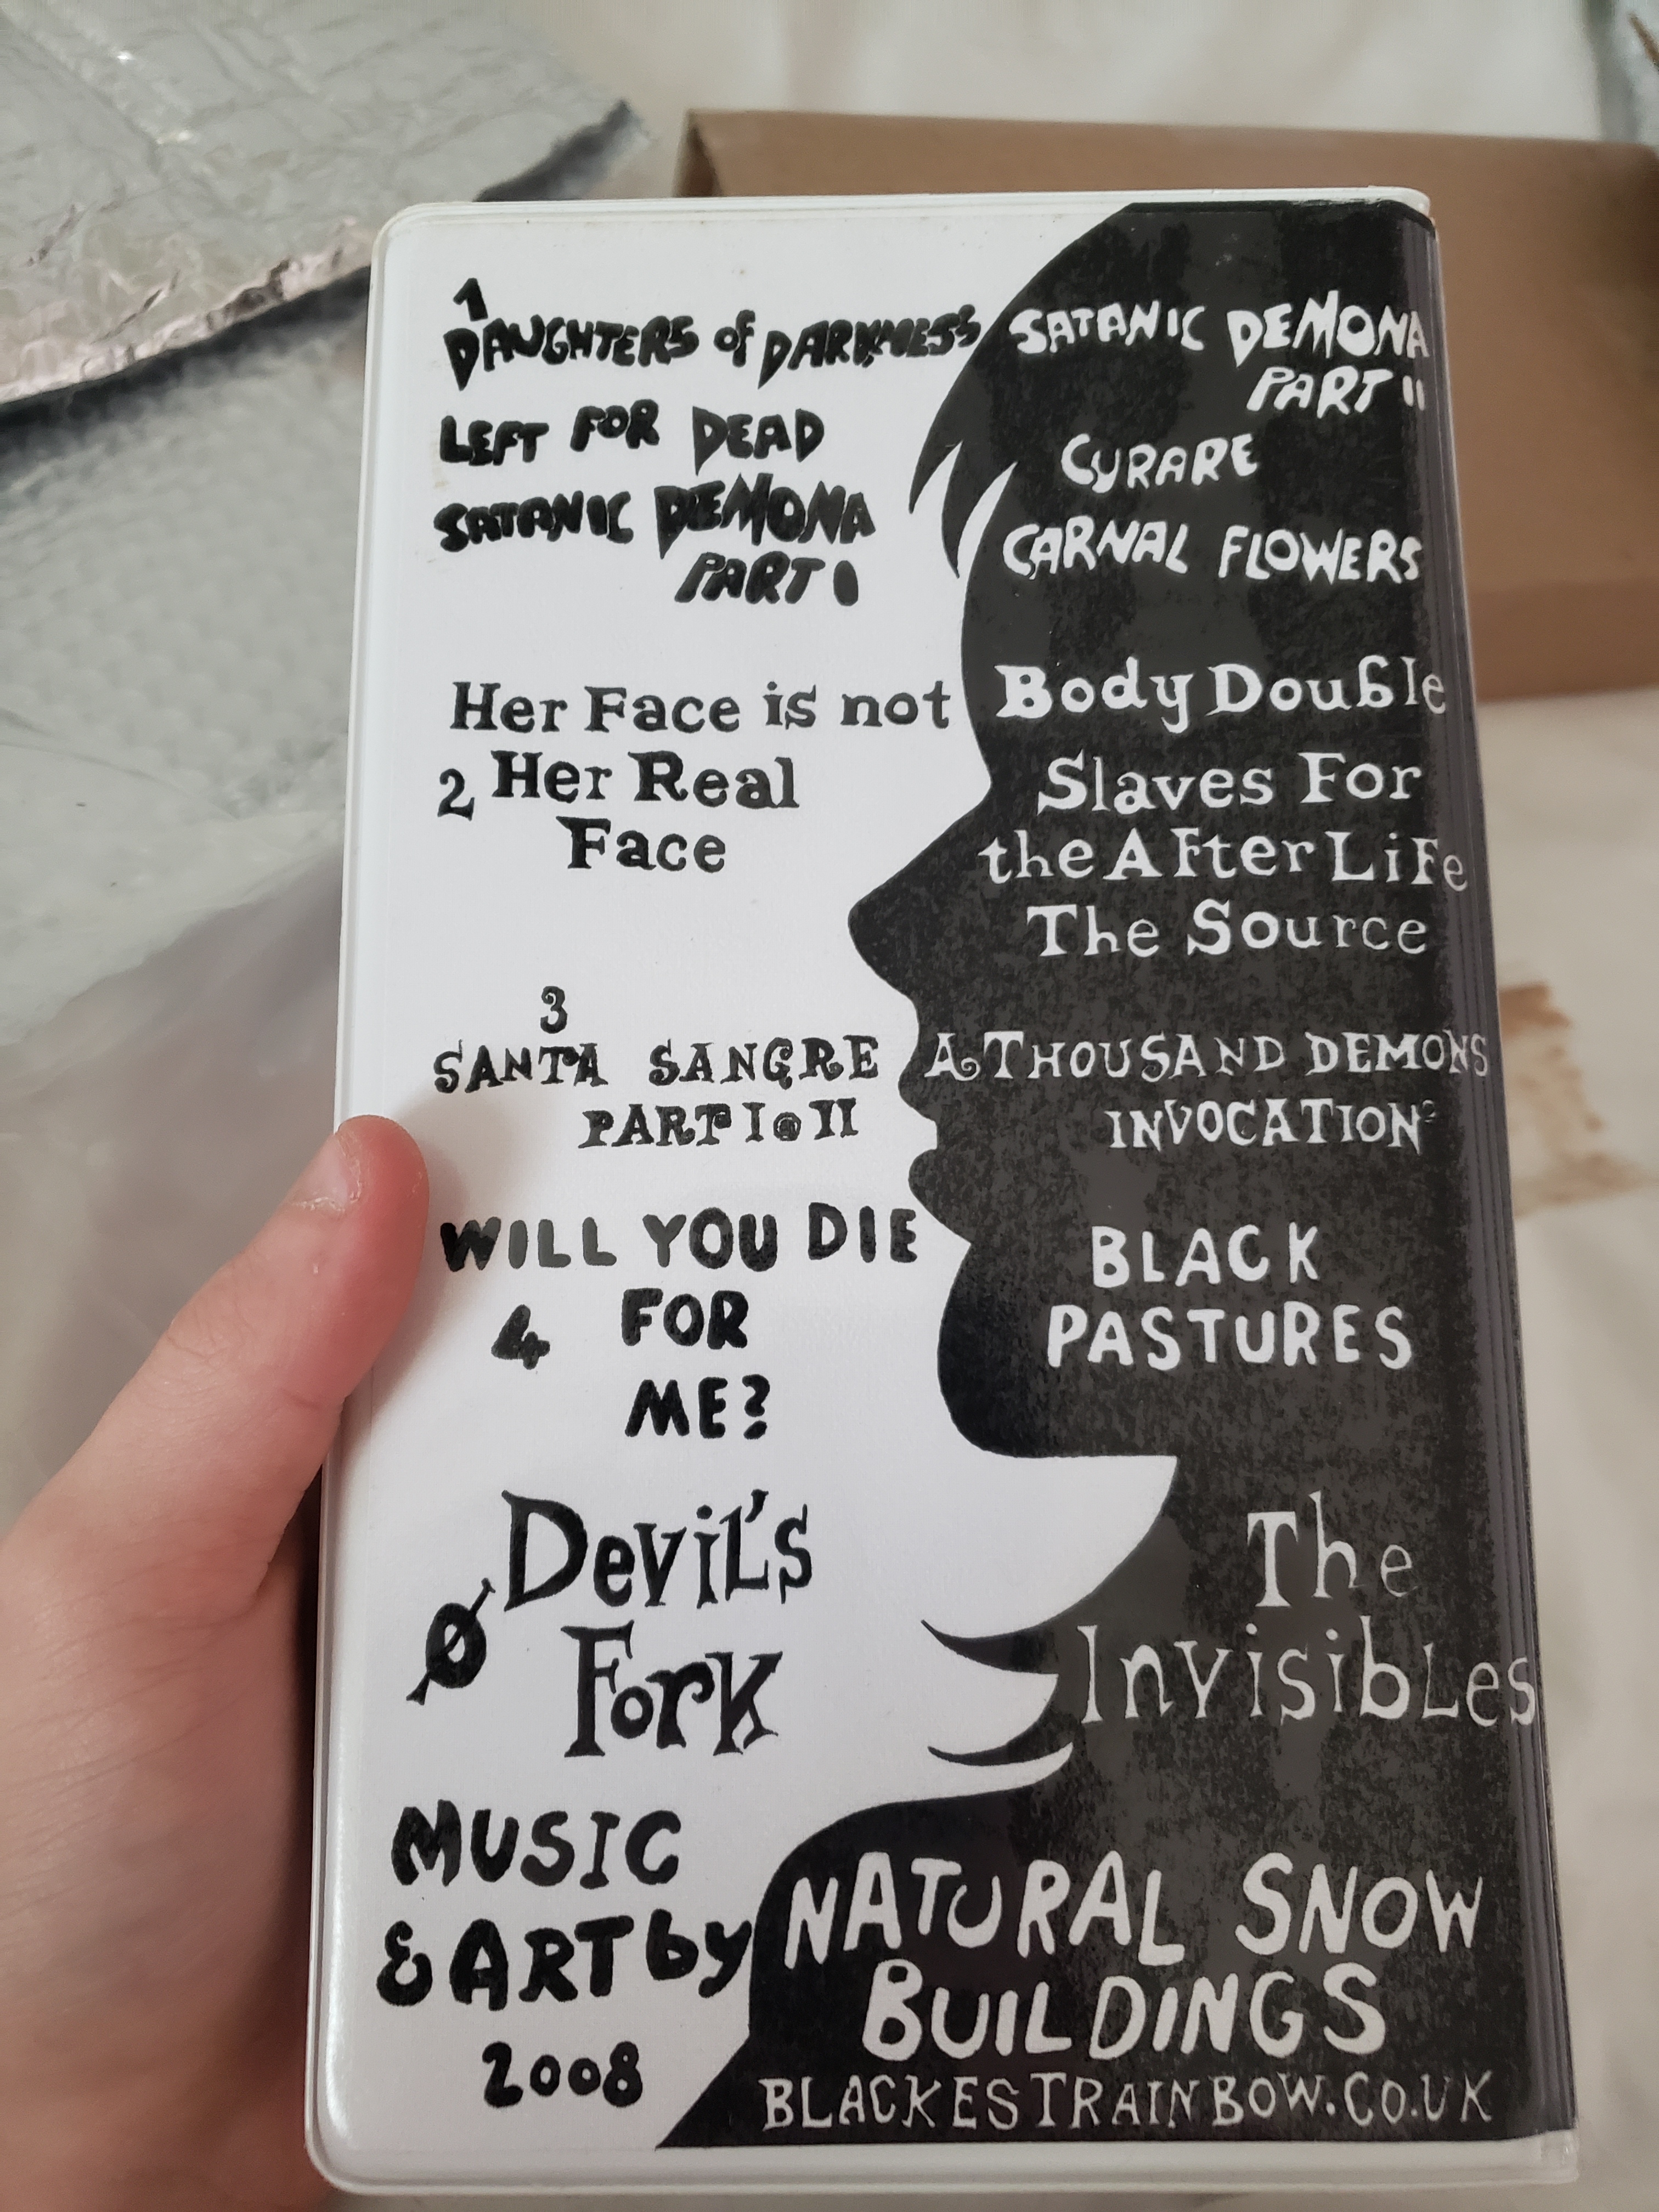 1
DAUGHTERS of DARKNESS
LEFT FOR DEAD
SATANIC DEMONA
PART I
SATANIC DEMONA
PART II
CURARE
CARNAL FLOWERS
Her Face is not
2 Her Real
Face
Body Double
Slaves For
the AfterLiFe
The Source
3
SANTA SANGRE
PART I & II
A THOUSAND DEMONS
INVOCATION
WILL YOU DIE
4 FOR
ME?
BLACK
PASTURES
Devil's
Ø Fork
The
Invisibles
MUSIC
& ART by
2008
NATURAL SNOW
BUILDINGS
BLACKESTRAINBOW.CO.UK